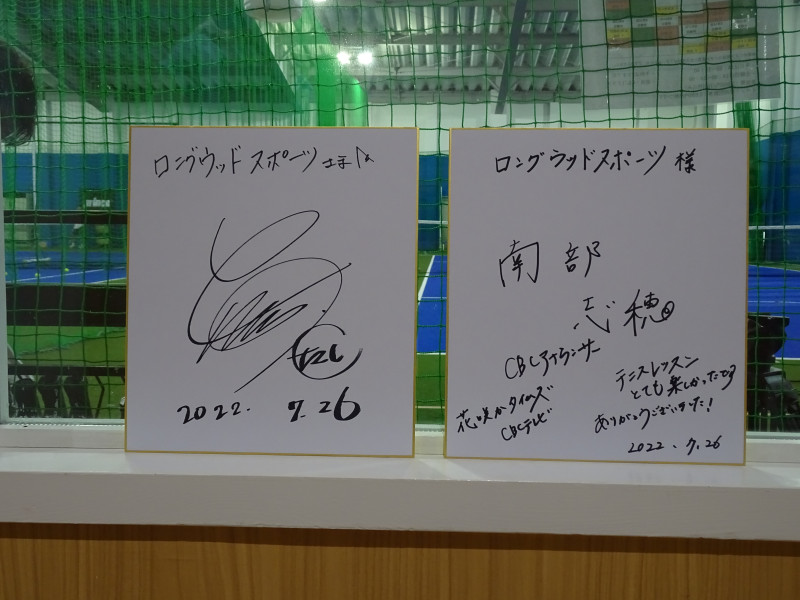 ロングウッドスポーツさまへ
2022. 7. 26
ロングウッドスポーツ 様
南部
志穂
CBCアナウンサー
花咲かタイムズ
CBCテレビ
テニスレッスン
とても楽しかったです
ありがとうございました!
2022. 7. 26